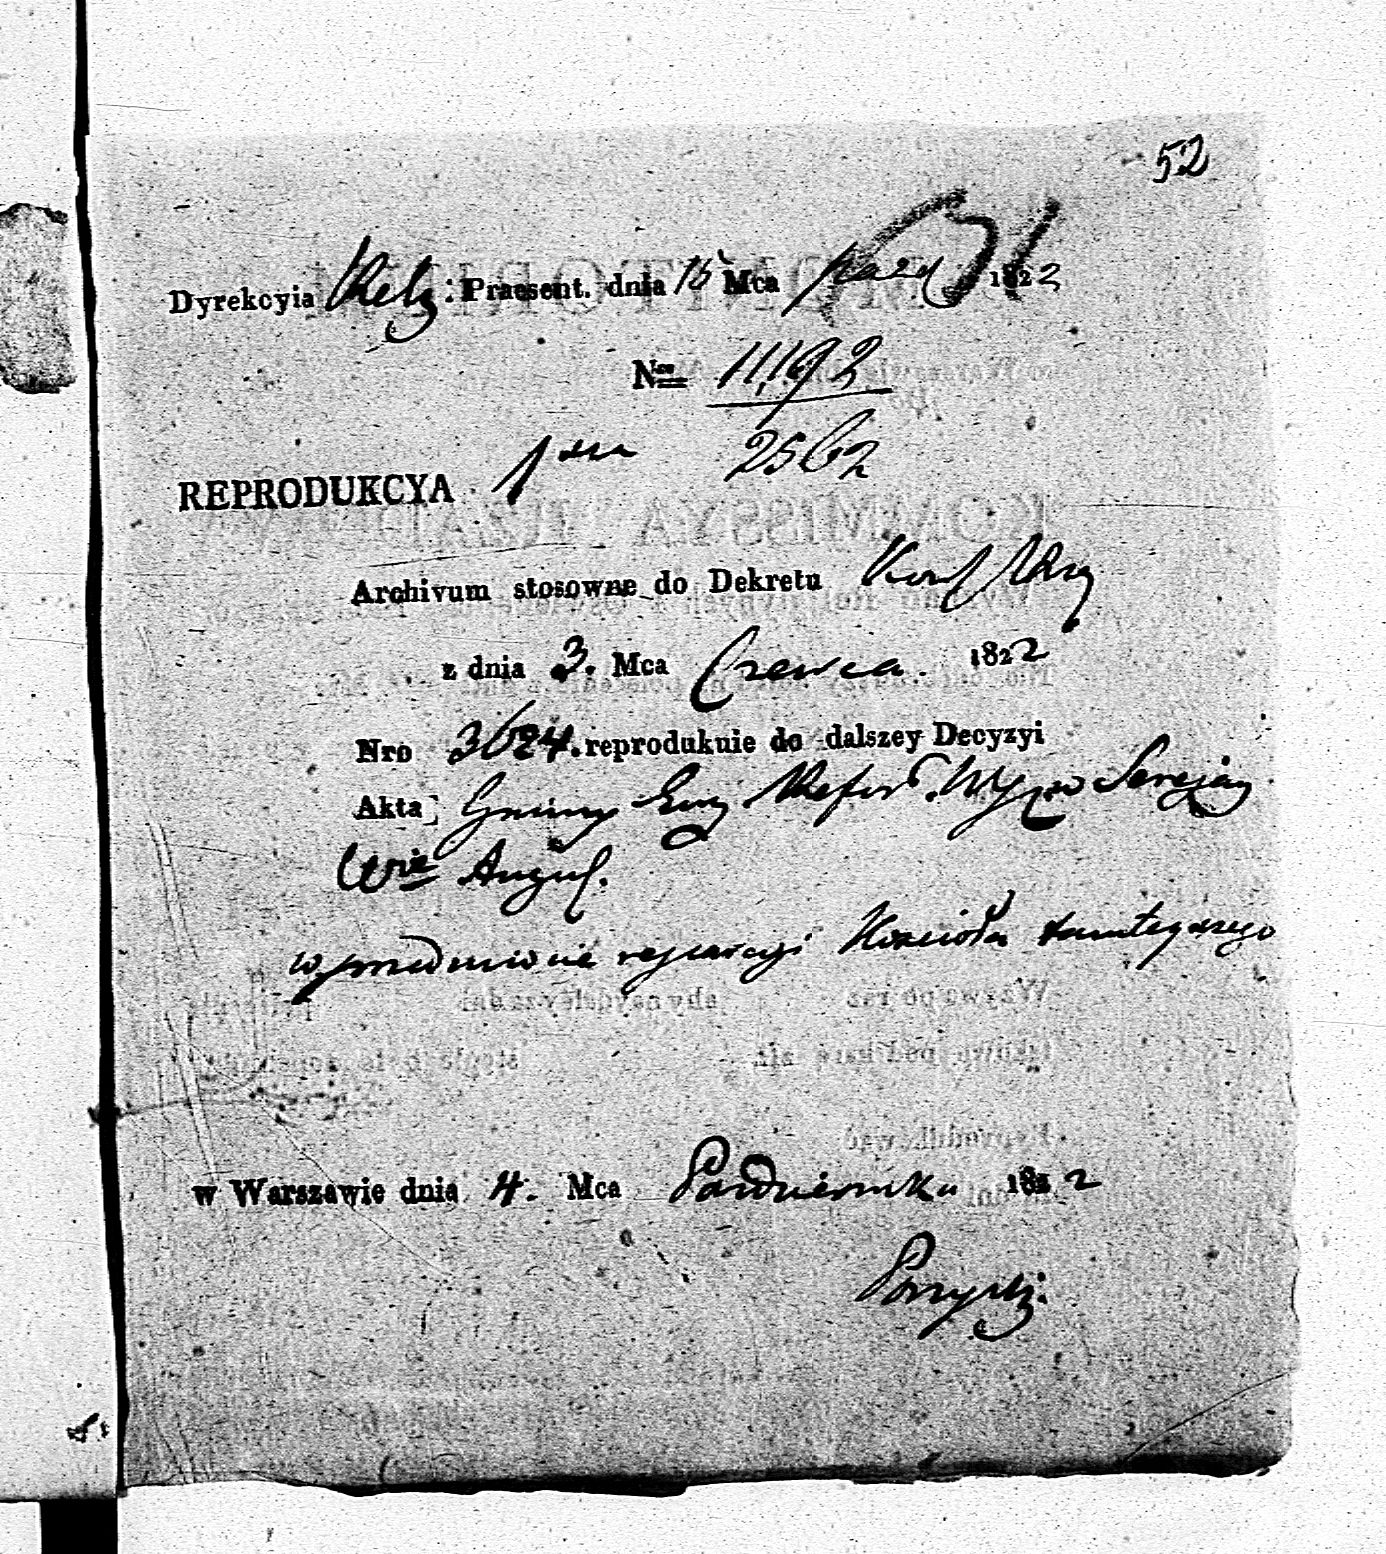 52
Dyrekcyia Relig: Praesent. dnia 15 Mca Pazd 1822
Nro 11,192
2562
REPRODUKCYA 1sza
Archivum stosowne do Dekretu
z dnia 3. Mca Czerwca. 1822
Nro 3624. reprodukuie do dalszey Decyzyi
Akta Gminy Ewg Reform. Wyz. w Serejach
Wdz Augus.
w przedmiocie reparacyi Kościoła tamteyszego
w Warszawie dnia 4. Mca Pazdziernika 1822